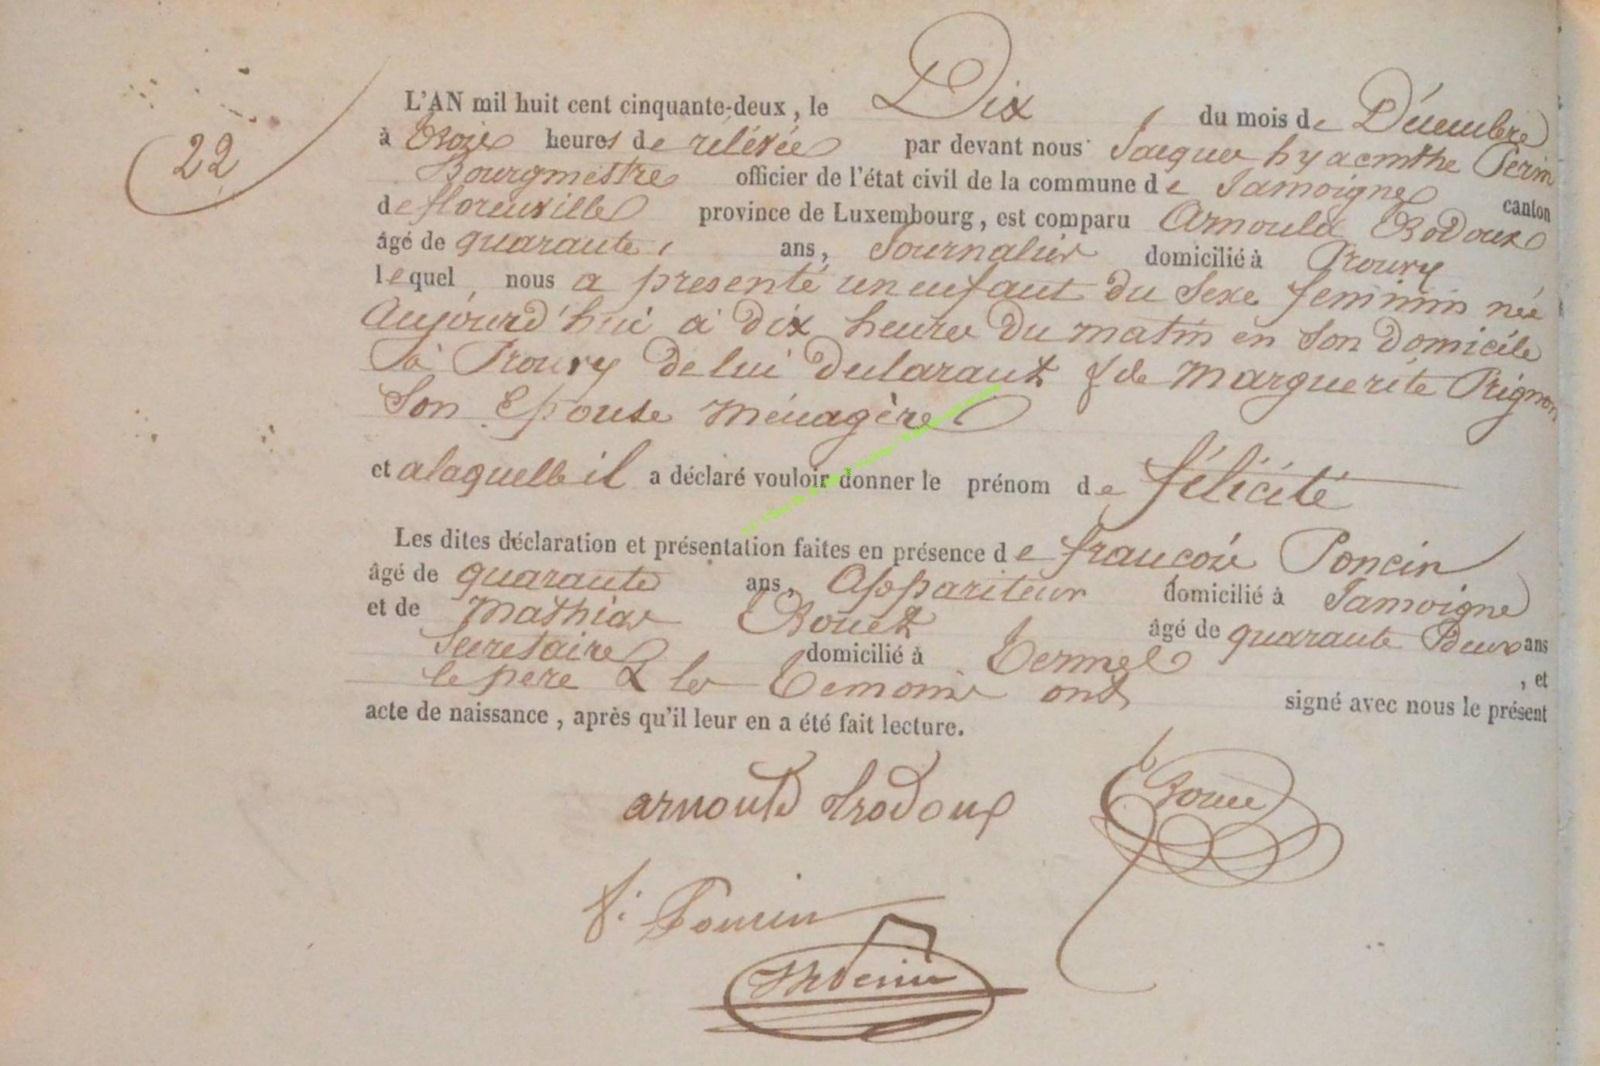 22
L'AN mil huit cent cinquante-deux, le Dix du mois de Décembre
à trois heures de relévée par devant nous Jacques hyacinthe Perin
Bourgmestre officier de l'état civil de la commune de Jamoigne canton
de florenville province de Luxembourg, est comparu Arnould Trodoux
âgé de quarante ans, Journalier domicilié à Prouvy
lequel nous a présenté un enfant du Sexe feminin née
Aujourd'hui à dix heures du matin en Son domicile
à Prouvy de lui déclarant & de Marguerite Pignon
Son Epouse Ménagère
et a laquelle il a déclaré vouloir donner le prénom de félicité
Les dites déclaration et présentation faites en présence de françois Poncin
âgé de quarante ans, Appariteur domicilié à Jamoigne
et de Mathias Bouet âgé de quarante Deux ans
Secretaire domicilié à Termes, et
le père & les temoins ont signé avec nous le présent
acte de naissance, après qu'il leur en a été fait lecture.
arnould trodoux
f: Poncin